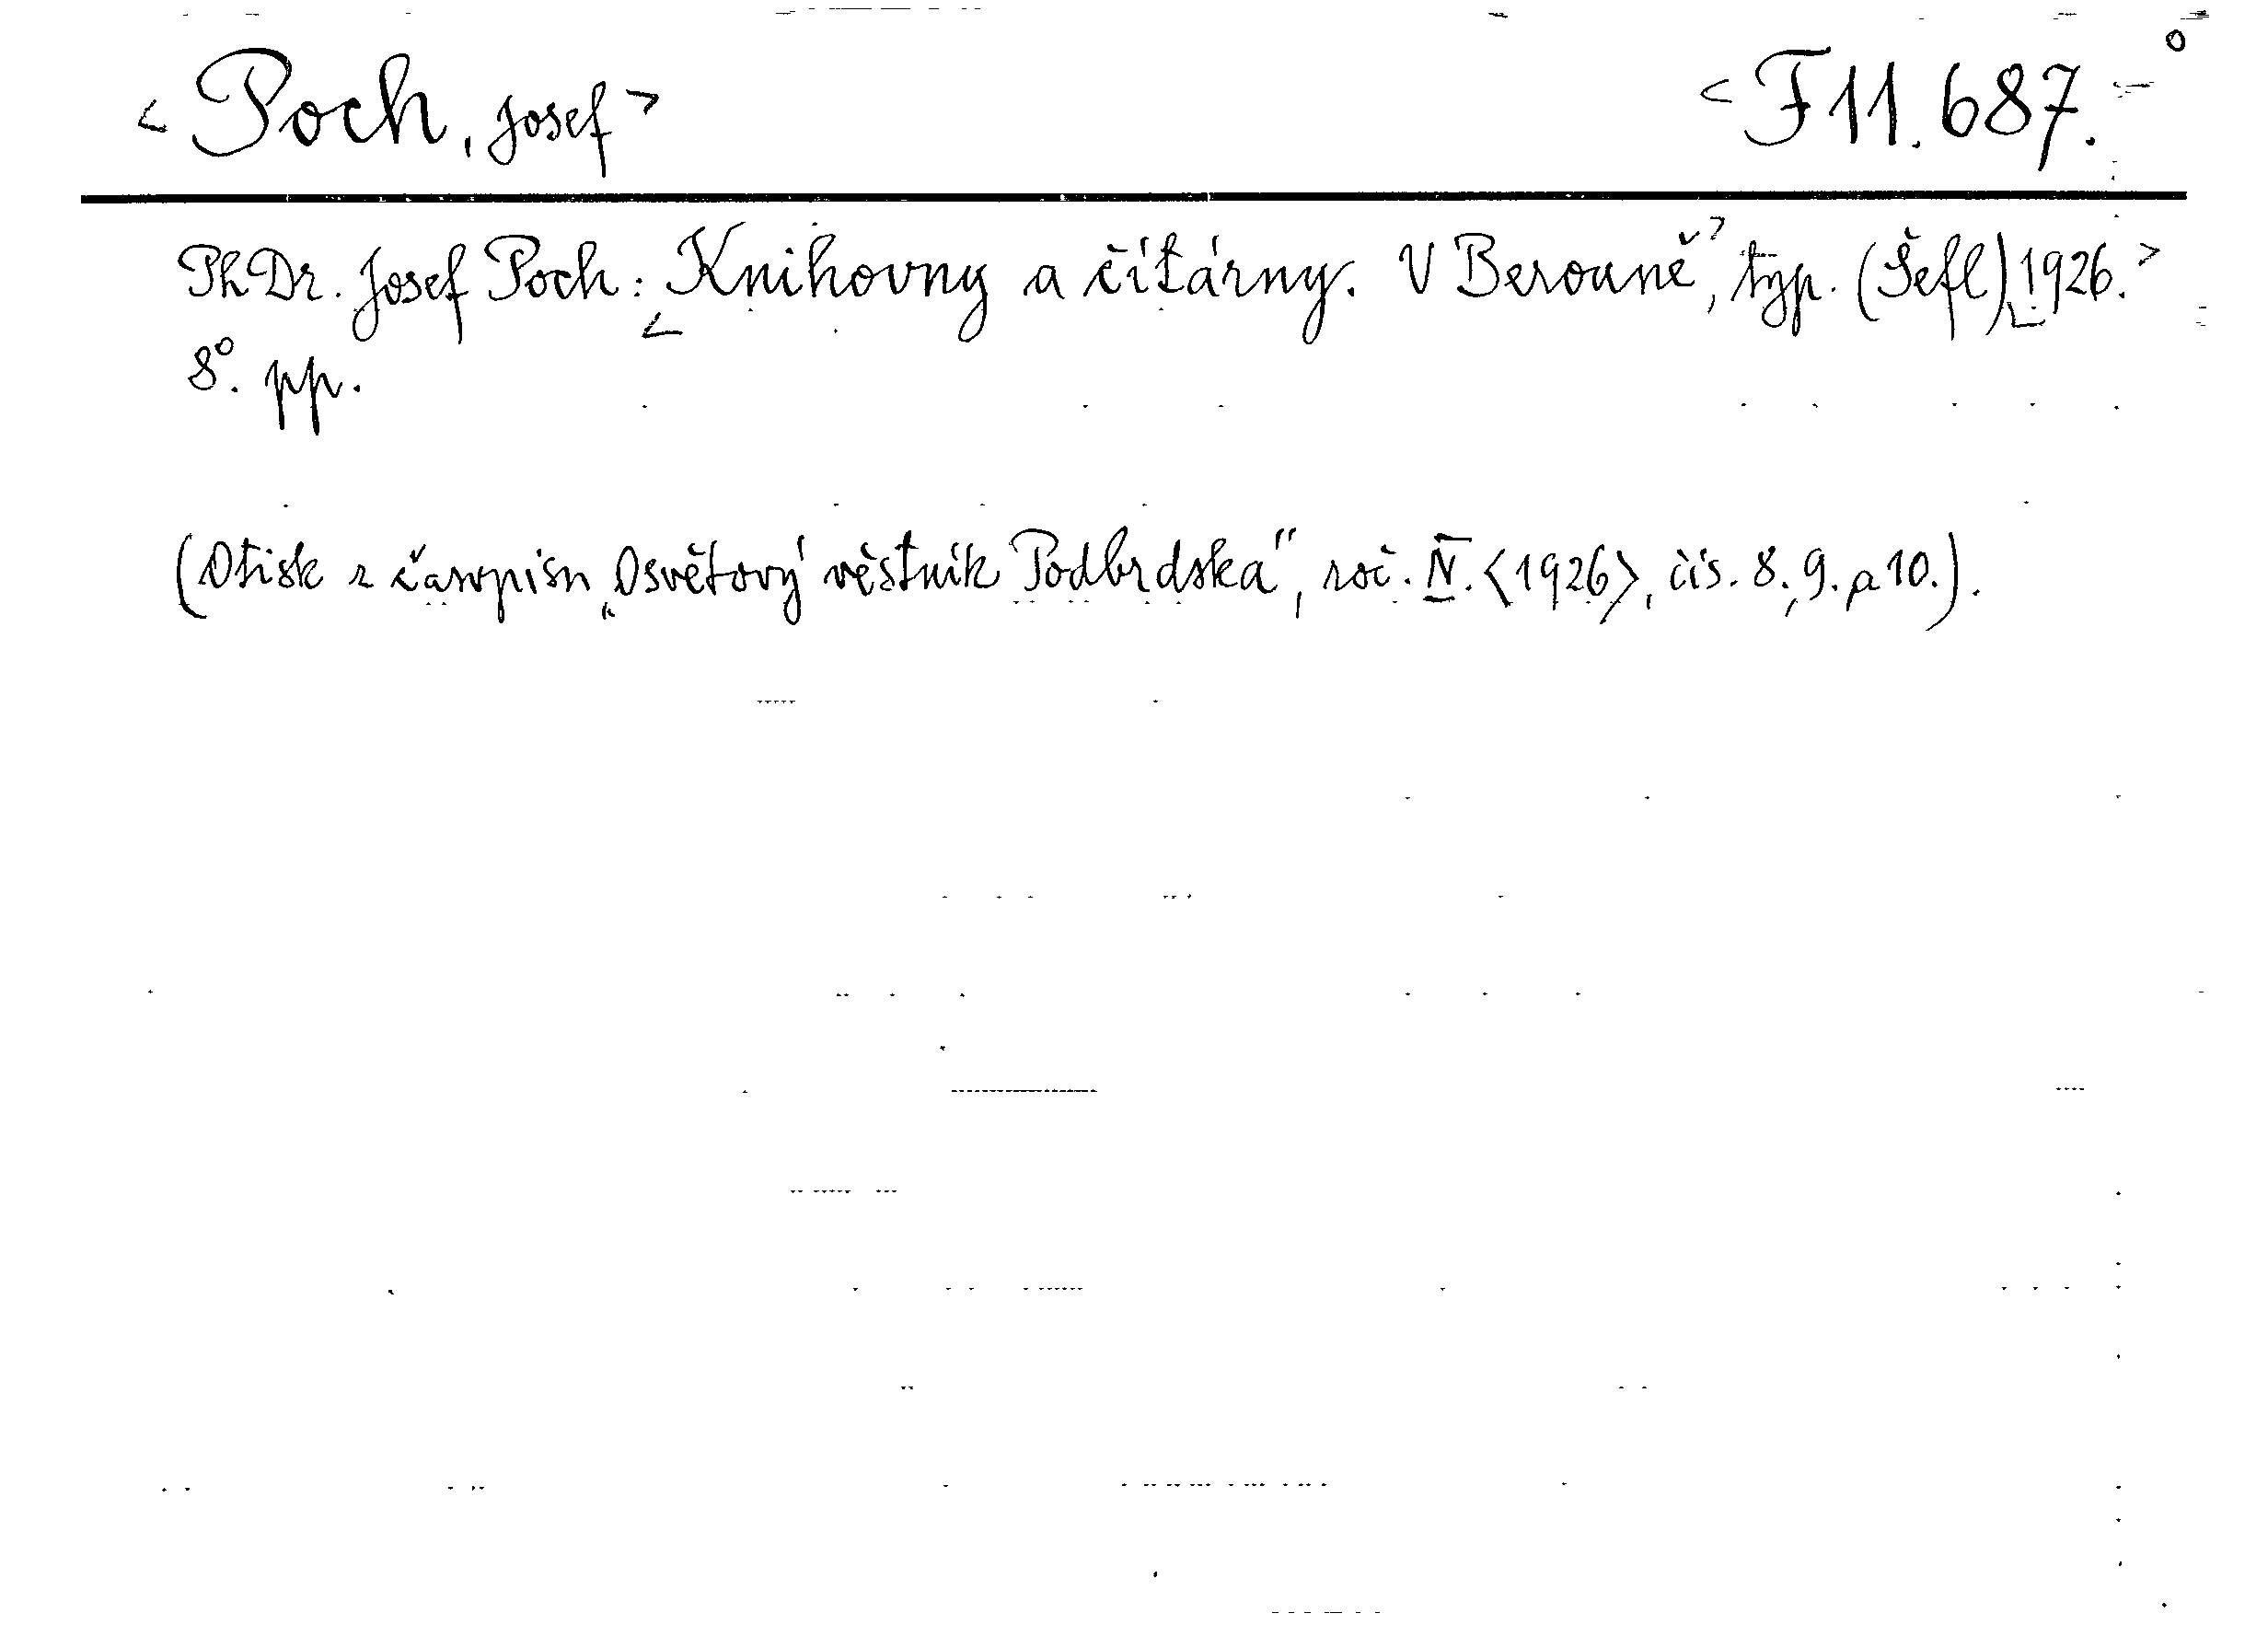 <Poch, Josef> <F 11.687.
PhDr. Josef Poch: <Knihovny a čítárny. V Berouně>, typ. (Šefl) <1926.>
8°. pp.
(Otisk z časopisu „Osvětový věstník Podbrdska", roč. IV. <1926>, čís. 8., 9. a 10.).